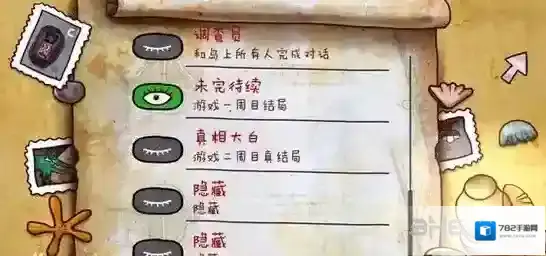 调查员
和岛上所有人完成对话
未完待续
游戏一周目结局
真相大白
游戏二周目真结局
隐藏
隐藏
隐藏
782手游网